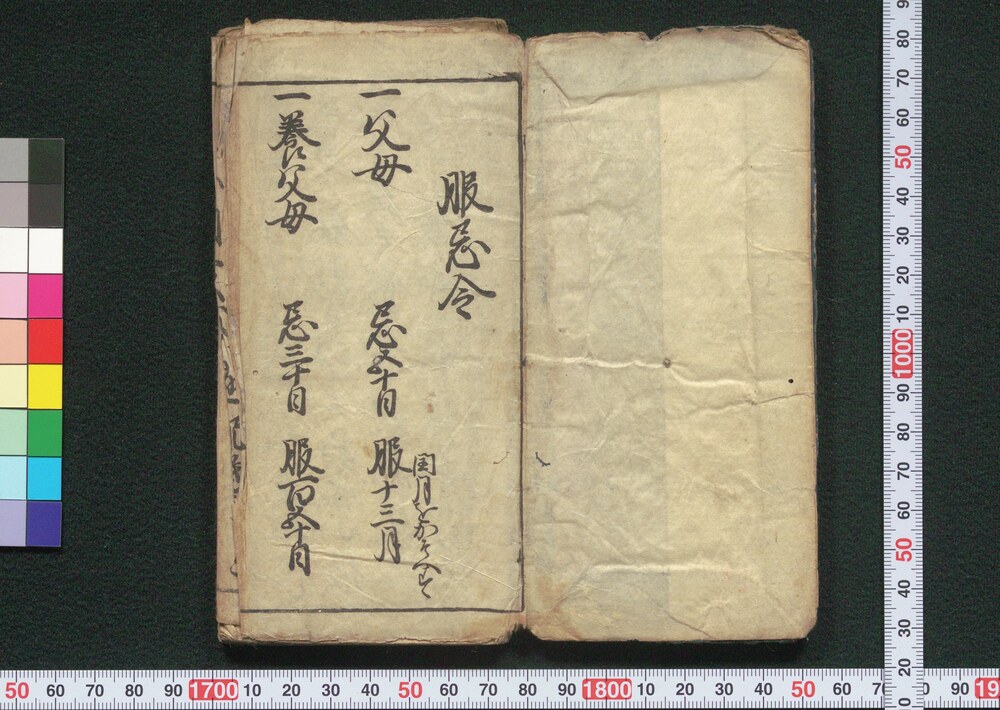 服忌令
一父母 忌五十日 服十三月
閏月をかそへす
一養父母 忌三十日 服百五十日